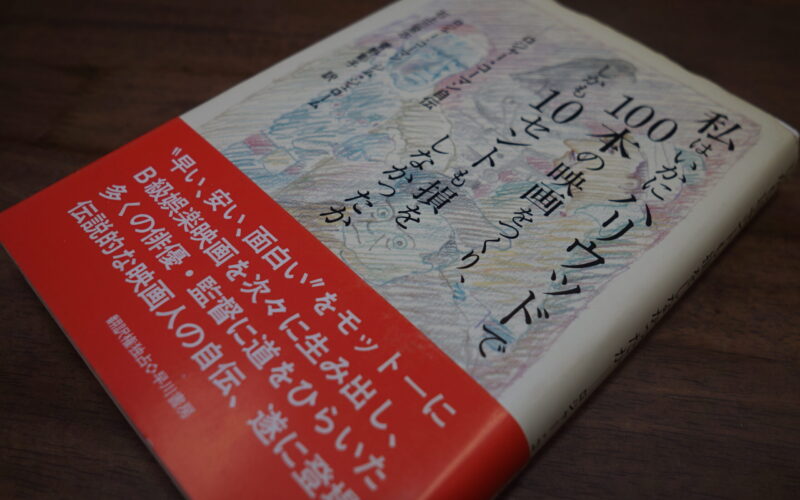 私はいかにハリウッドで
100本の映画をつくり、
しかも10セントも損を
しなかったか
ロジャー・コーマン自伝
訳
“早い、安い、面白い”をモットーに
B級娯楽映画を次々に生み出し、
多くの俳優・監督に道をひらいた
伝説的な映画人の自伝、遂に登場
翻訳権独占◇早川書房